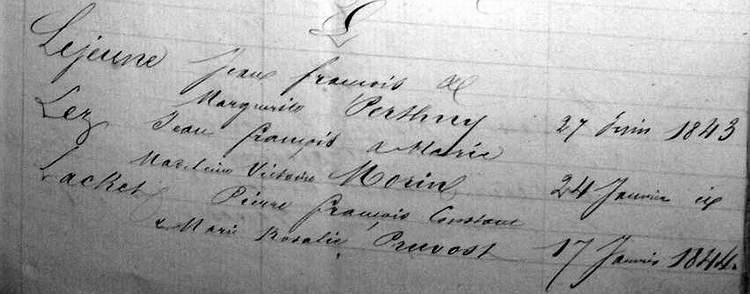 L
Lejeune Jean françois &
Marguerite Perthuy 27 Juin 1843
Lez Jean françois & Marie
Madeleine Victoire Morin 24 Janvier
Lacket Pierre françois Constant
& Marie Rosalie Pruvost 17 Janvier 1844.